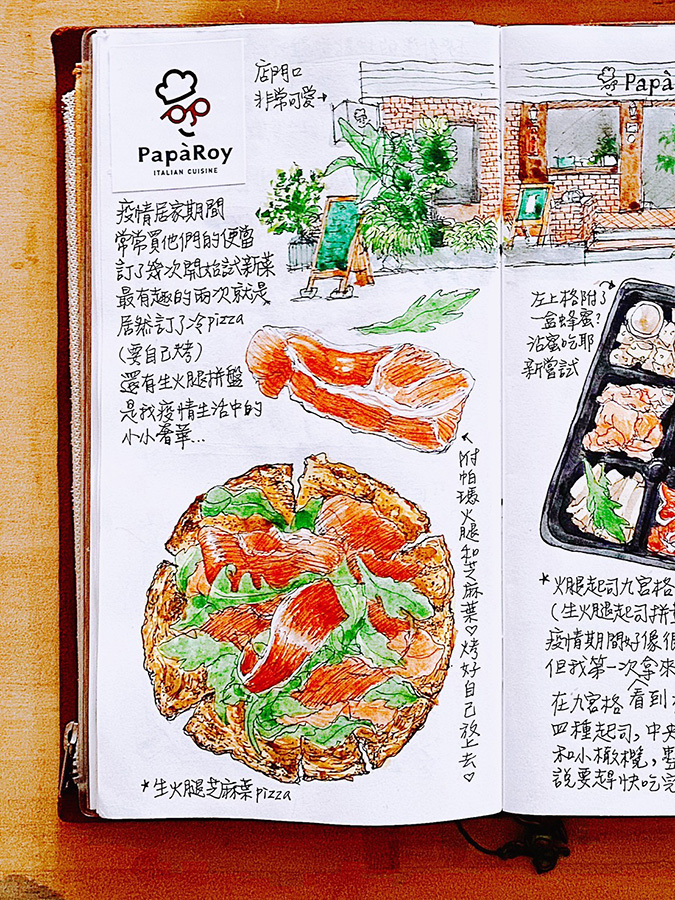 PapàRoy
ITALIAN CUISINE
店門口
非常可愛→
疫情居家期間
常常買他們的便當
訂了幾次開始試新菜
最有趣的兩次就是
居然訂了冷pizza
(要自己烤)
還有生火腿拼盤
是我疫情生活中的
小小奢華..
附帕瑪火腿和芝麻葉♡烤好自己放上去♡
*生火腿芝麻葉pizza
Papà
左上格附了
一盒蜂蜜?
沾蜜吃耶
新嘗試
*火腿起司九宮格
(生火腿起司拼
疫情期間好像很
但我第一次拿來
在九宮格看到
四種起司,中央
和小橄欖,
說要趕快吃完